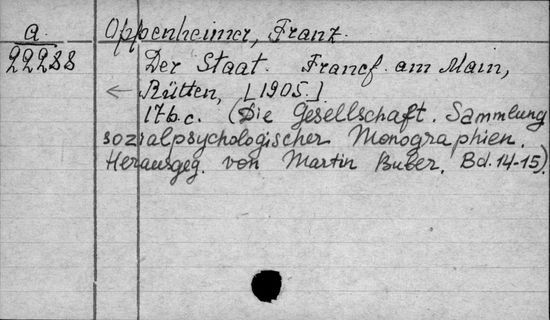 a.
22288
Oppenheimer, Franz.
Der Staat. Francf. am Main,
← Rütten, [1905.]
17б.с. (Die Gesellschaft. Sammlung
sozialpsychologischer Monographien.
Herausgeg. von Martin Buber. Bd. 14-15).